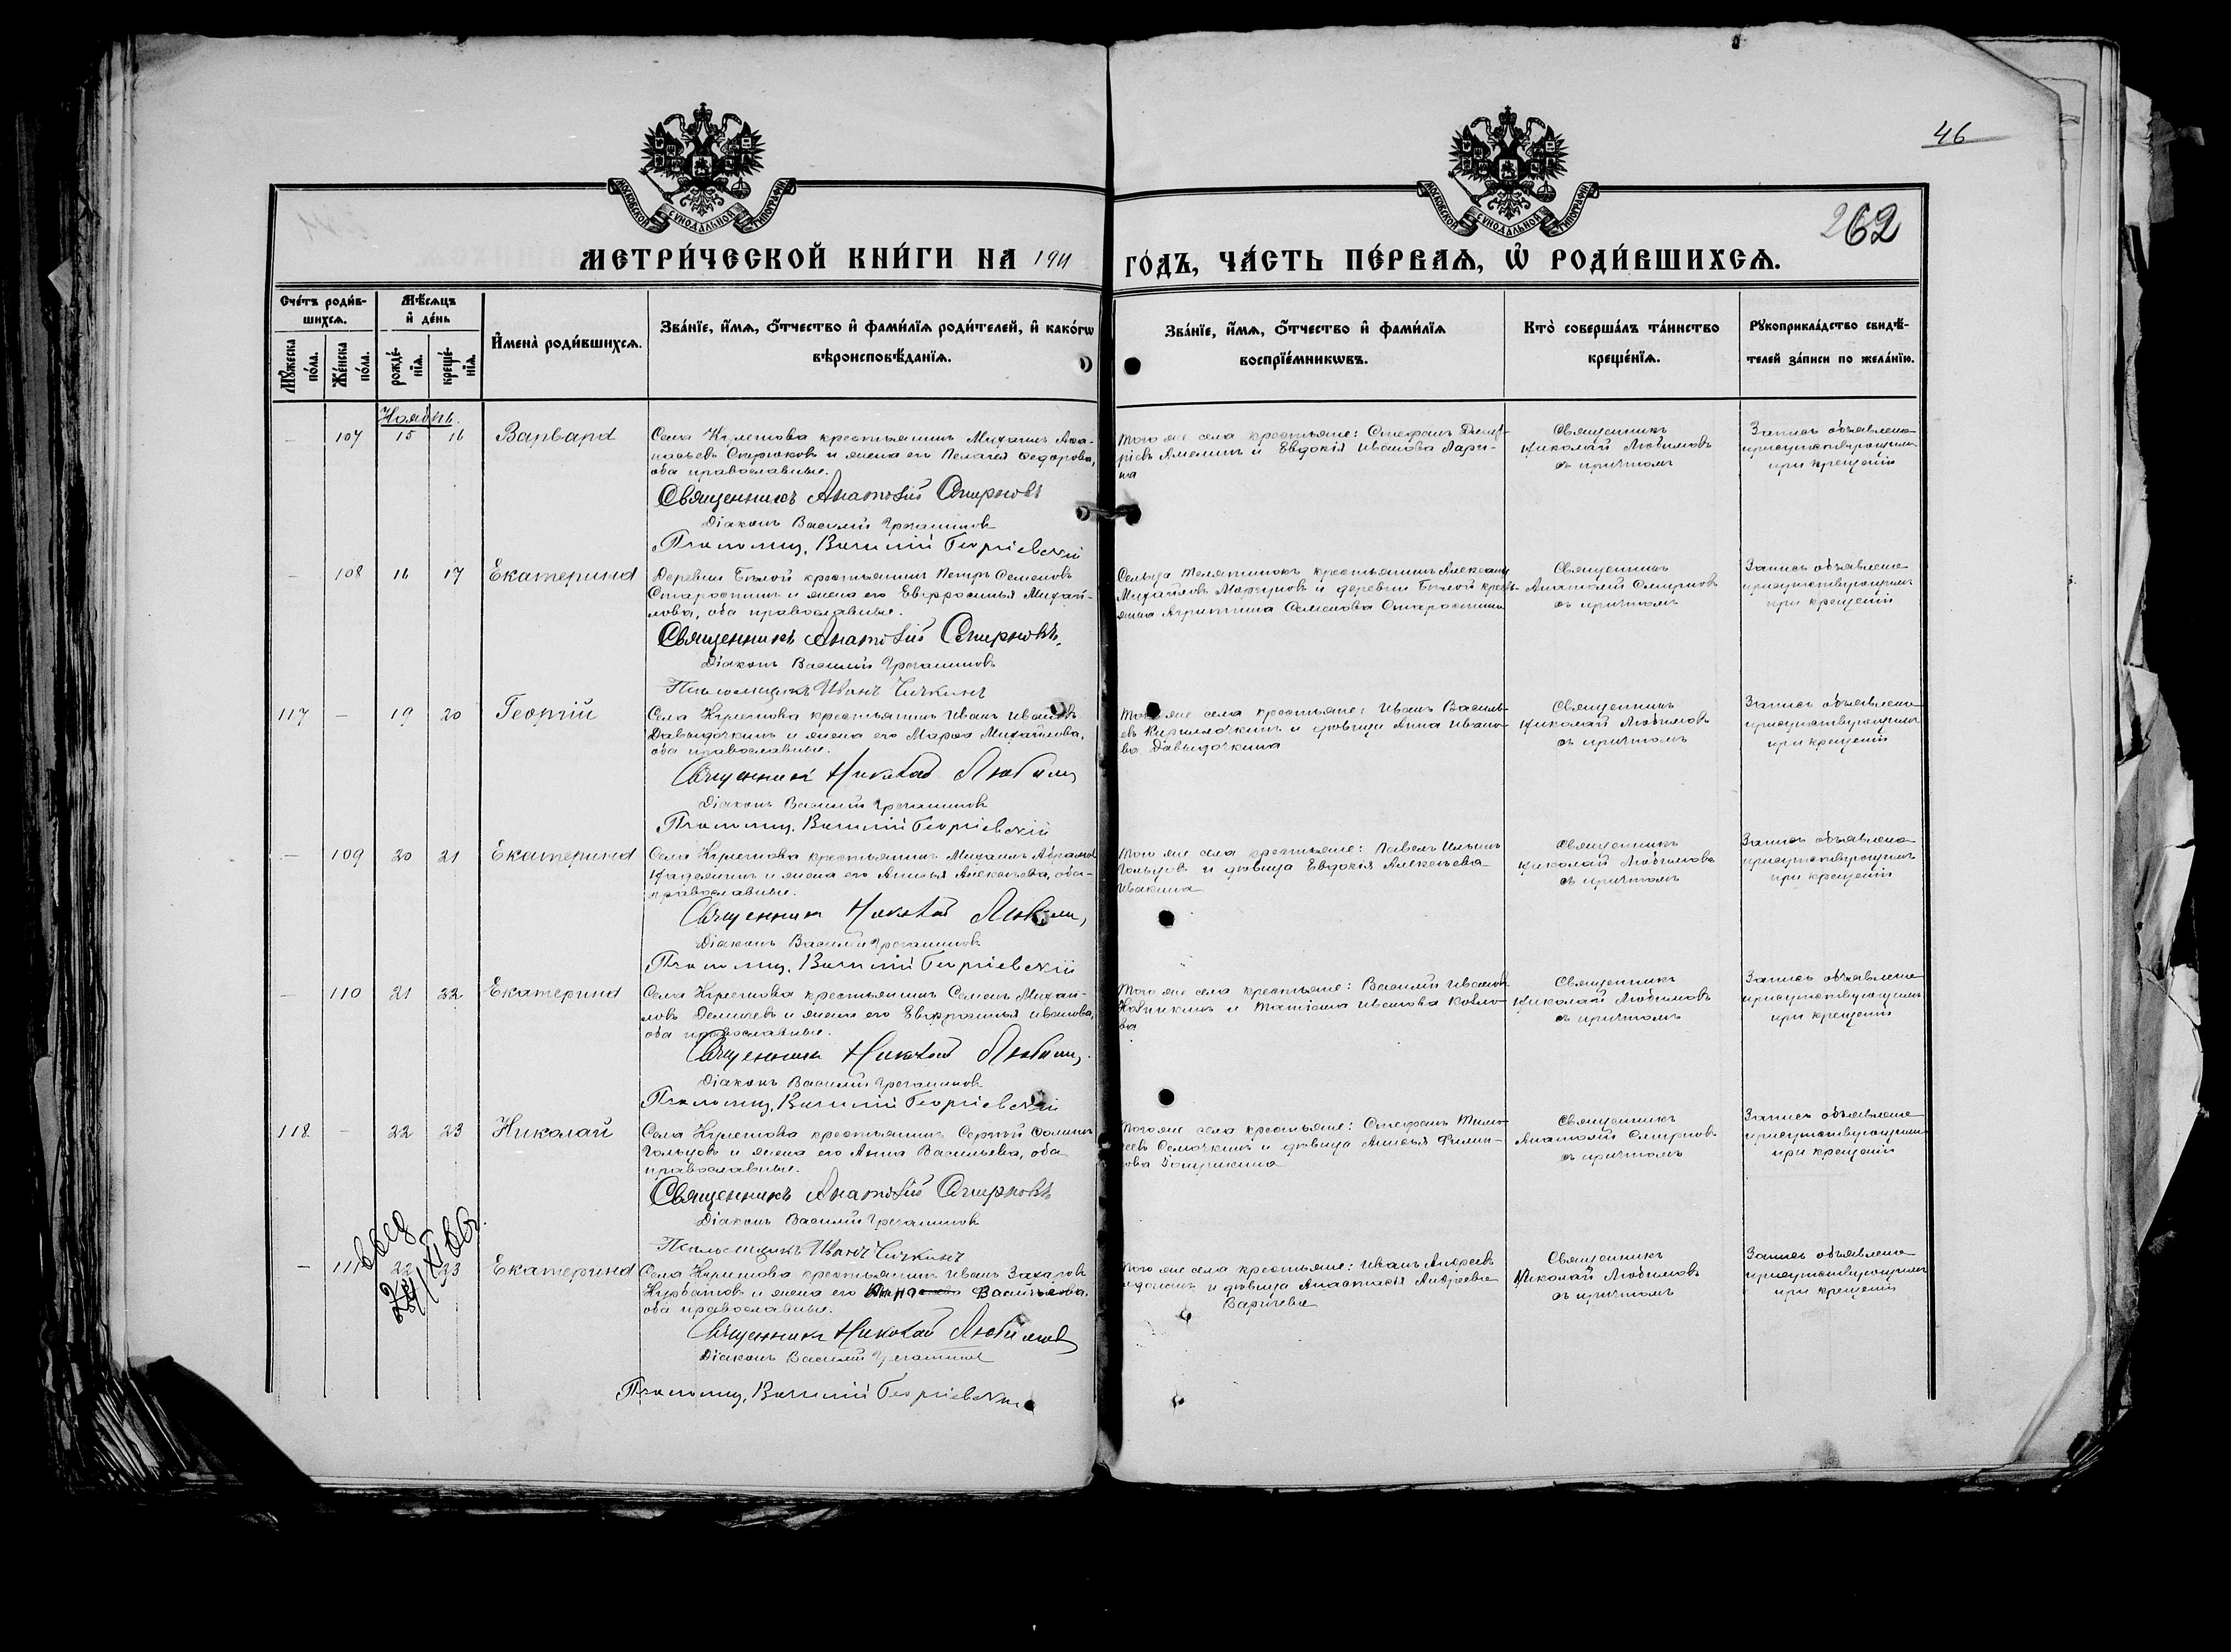 46
262
МОСКОВСКОЙ СѴНОДАЛЬНОЙ ТИПОГРАФІИ
МОСКОВСКОЙ СѴНОДАЛЬНОЙ ТИПОГРАФІИ
МЕТРИ́ЧЕСКОЙ КНИ́ГИ НА 1911
ГО́ДЪ, ЧА́СТЬ ПЕ́РВАѦ, Ѡ҆ РОДИ́ВШИХСѦ.
Сче́тъ роди́в-
шихсѧ.
Мꙋ́жеска по́ла.
Же́нска по́ла.
Мѣ́сѧцъ и҆ де́нь
рожде́-нїѧ.
креще́-нїѧ.
И҆мена̀ роди́вшихсѧ.
Зва́нїе, и҆́мѧ, ѻ҆́тчество и҆ фами́лїѧ роди́телей, и҆ како́гѡ
вѣроисповѣ́данїѧ.
Зва́нїе, и҆́мѧ, ѻ҆́тчество и҆ фами́лїѧ
воспрїе́мникѡвъ.
Кто̀ соверша́лъ та́инство
креще́нїѧ.
Рꙋкоприкла́дство свидѣ́-
телей за́писи по жела́нїю.
Ноябрь.
– 107 15 16 Варвара
Села крестьянинъ Михаилъ Афа-
насьевъ и жена его Пелагея Федорова,
оба православные.
Священникъ Анатолій Смирновъ
Діаконъ Василій
Псаломщ. Василій Георгіевскій
Того же села крестьяне: Стефанъ Димит-
ріевъ Амелинъ и Евдокія Иванова Лари-
на
Священникъ
Николай Любимовъ
съ причтомъ
Запись объявлена
присутствующимъ
при крещеніи
– 108 16 17 Екатерина
Деревни Бѣлой крестьянинъ Петръ Семеновъ
Старостинъ и жена его Евфросинья Михай-
лова, оба православные.
Священникъ Анатолій Смирновъ.
Діаконъ Василій
Псаломщикъ Иванъ Чичкинъ
Сельца крестьянинъ
Михайловъ и деревни Бѣлой кресть-
янка Агриппина Семенова Старостина
Священникъ
Анатолій Смирновъ
съ причтомъ
Запись объявлена
присутствующимъ
при крещеніи
117 – 19 20 Георгій
Села крестьянинъ Иванъ Ивановъ
Давыдочкинъ и жена его Марфа Михайлова,
оба православные.
Священникъ Николай Любимовъ
Діаконъ Василій
Псаломщ. Василій Георгіевскій
Того же села крестьяне: Иванъ Василь-
евъ и дѣвица Анна Ивано-
ва Давыдочкина
Священникъ
Николай Любимовъ
съ причтомъ
Запись объявлена
присутствующимъ
при крещеніи
– 109 20 21 Екатерина
Села крестьянинъ Михаилъ Абрамов
и жена его Анисья Алексѣева, оба
православные.
Священникъ Николай Любимовъ
Діаконъ Василій
Псаломщ. Василій Георгіевскій
Того же села крестьяне: Павелъ Ильинъ
Гольцовъ и дѣвица Евдокія Алексѣева
Ивакина
Священникъ
Николай Любимовъ
съ причтомъ
Запись объявлена
присутствующимъ
при крещеніи
– 110 21 22 Екатерина
Села крестьянинъ Семенъ Михай-
ловъ и жена его Евфросинья Иванова,
оба православные.
Священникъ Николай Любимовъ
Діаконъ Василій
Псаломщ. Василій Георгіевскій
Того же села крестьяне: Василій Ивановъ
и Татіана Иванова Козло-
ва
Священникъ
Николай Любимовъ
съ причтомъ
Запись объявлена
присутствующимъ
при крещеніи
118 – 22 23 Николай
Села крестьянинъ Сергѣй Фоминъ
Гольцовъ и жена его Анна Васильева, оба
православные.
Священникъ Анатолій Смирновъ
Діаконъ Василій
Псаломщикъ Иванъ Чичкинъ
Того же села крестьяне: Стефанъ Тимо-
феевъ Семочкинъ и дѣвица Анисья Филип-
пова
Священникъ
Анатолій Смирновъ
съ причтомъ
Запись объявлена
присутствующимъ
при крещеніи
– 111 22 23 Екатерина
Села крестьянинъ Иванъ Захаровъ
Курбатовъ и жена его Васильева,
оба православные.
Священникъ Николай Любимовъ
Діаконъ Василій
Псаломщ. Василій Георгіевскій
Того же села крестьяне: Иванъ Андреевъ
и дѣвица Анастасія Андреева
Варичева
Священникъ
Николай Любимовъ
съ причтомъ
Запись объявлена
присутствующимъ
при крещеніи